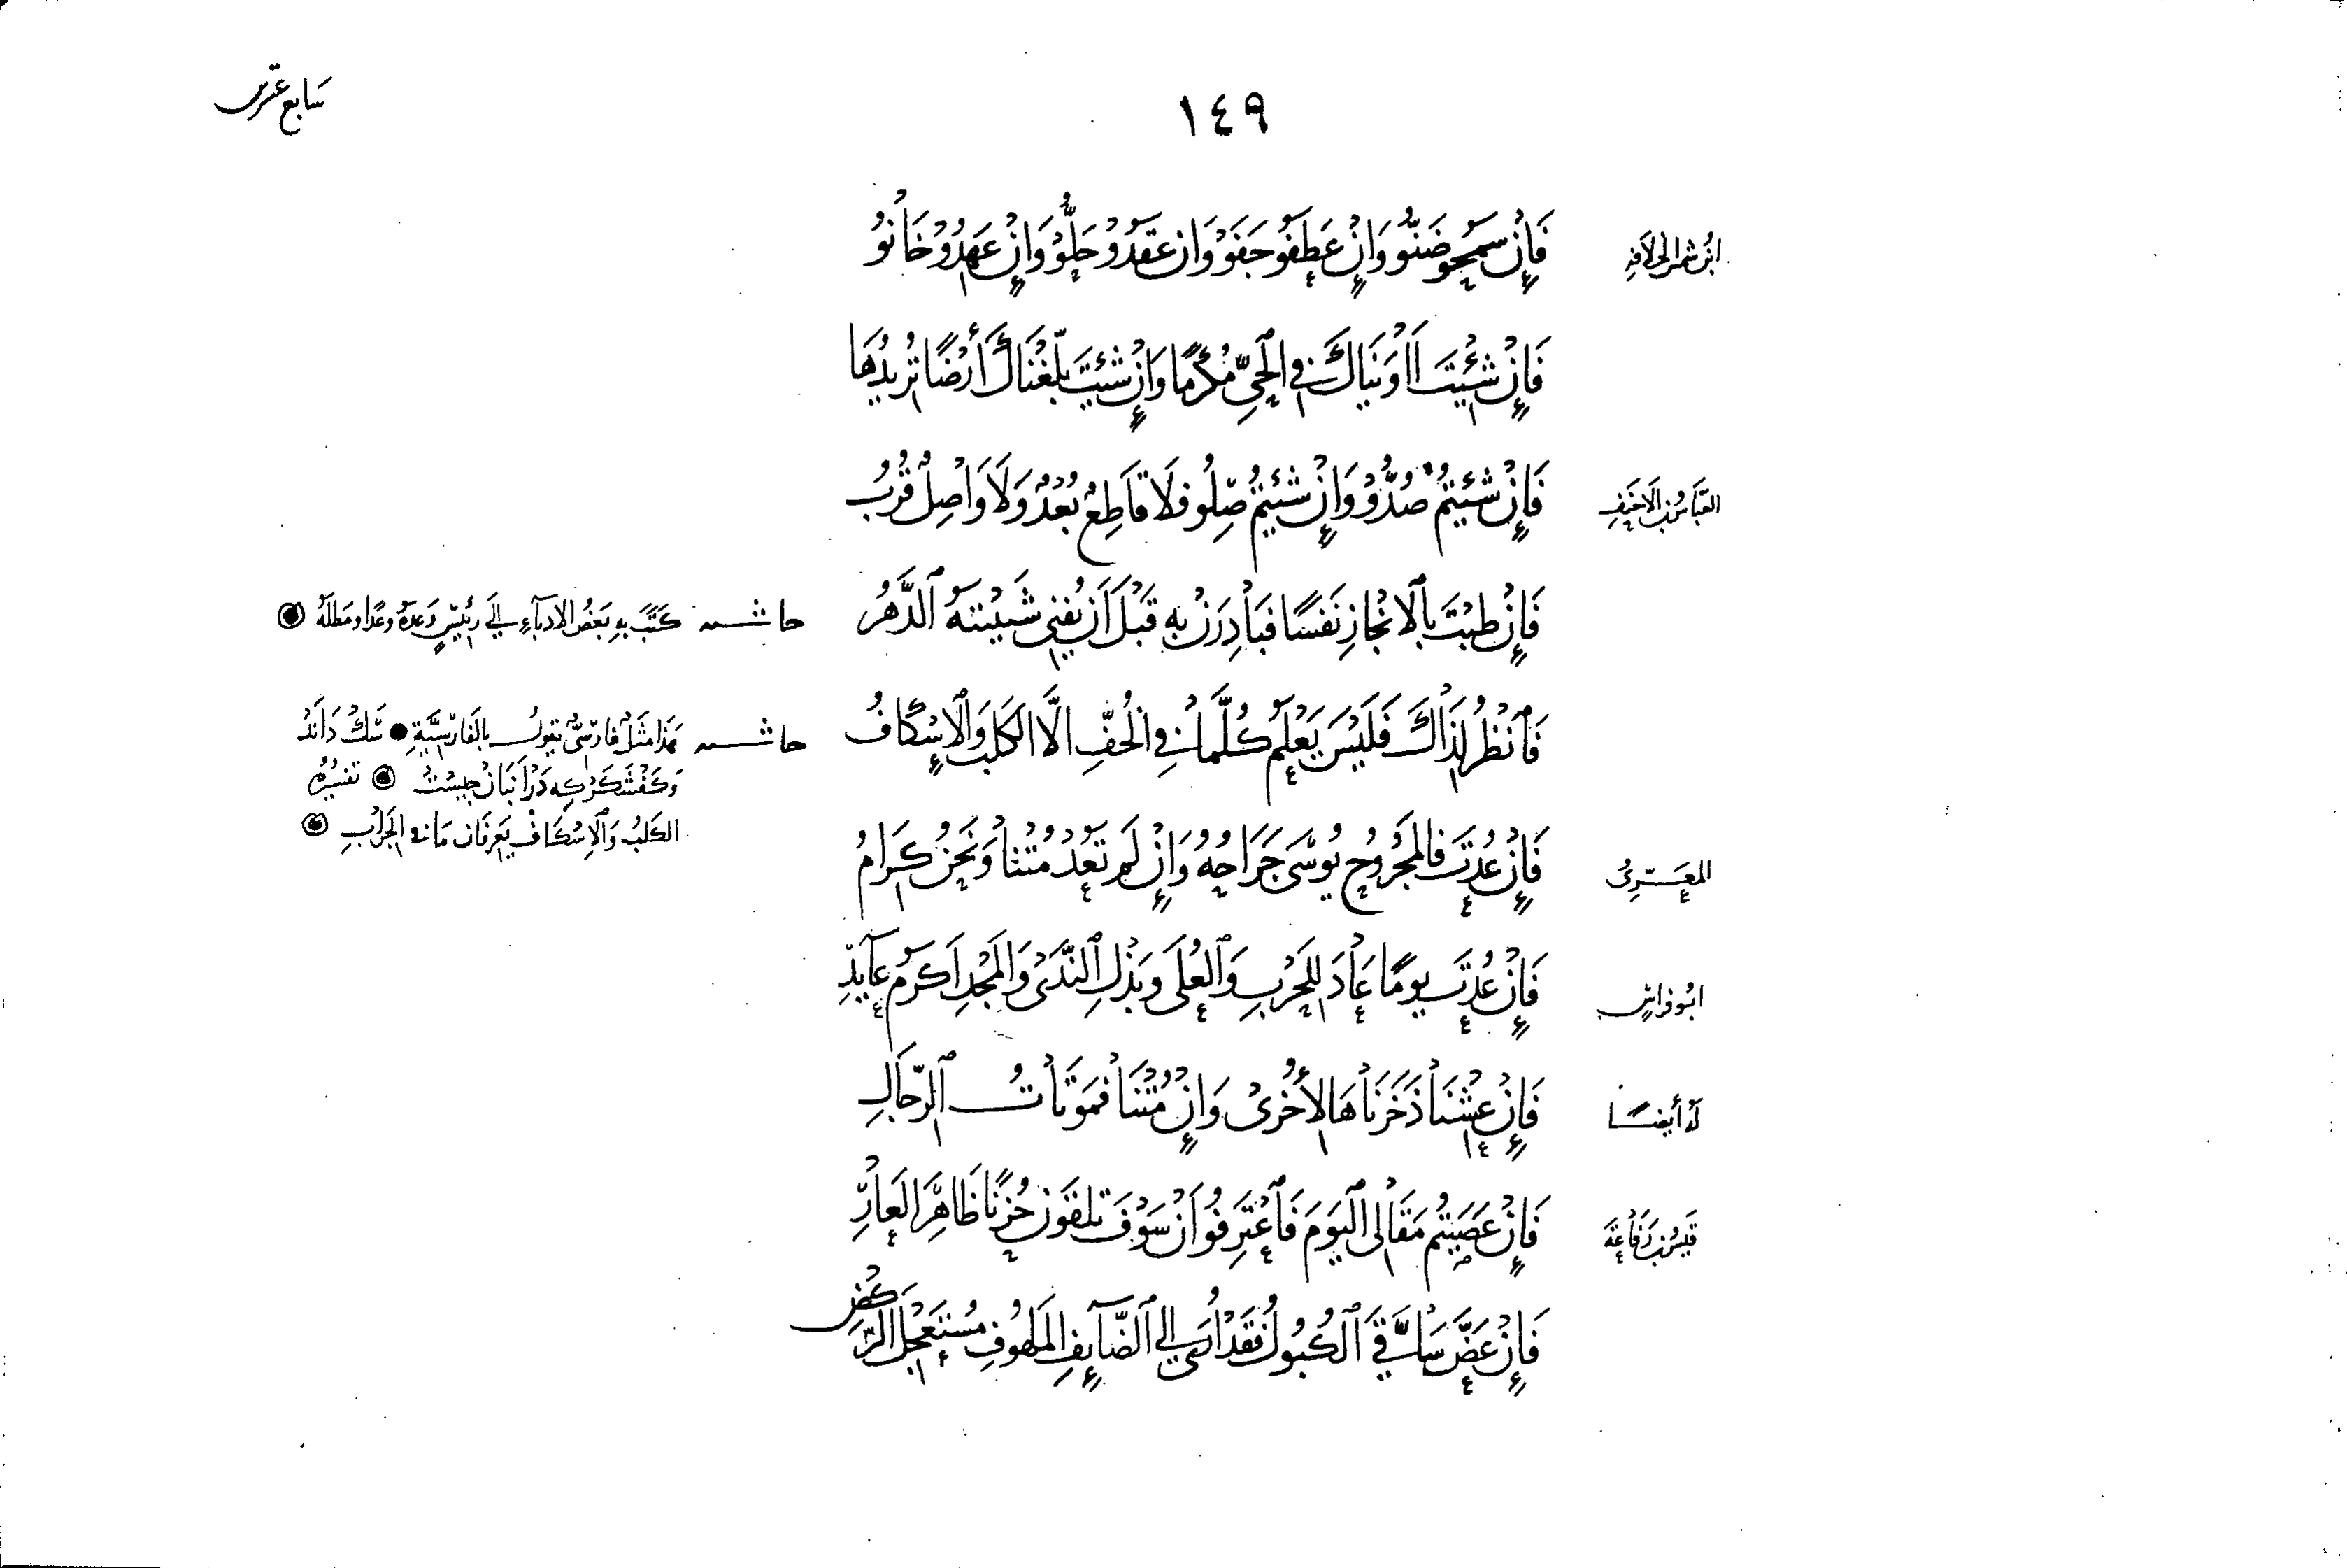 سَابع عشر
١٤٩
ابن شمس الخلافة
فَإِنْ سَمَحُو ضَنُّو وَإِنْ عَطَفُو جَفَوْ وَإِن عَقَدُوْ حَلُّوْ وَإِنْ عَهِدُوْ خَانُوُ
فَإِنْ شِئْتَ اَاوَيْنَاكَ في الْحَيِّ مُكْرَمًا وَإِنْ شِئْتَ بَلَّغْنَاكَ أَرْضًا تُرِيدُهَا
العَبَّاسُ بن الاَحْنَفِ
فَإِنْ شِئْتُمُ صُدُّوْ وَإِنْ شِئْتُمُ صِلُو فَلَا قَاطِعٌ بُعْدٌ وَلَا وَاصِلٌ قُرْبُ
فَإِنْ طِبْتَ بِالْاِنْجَازِ نَفْسًا فَبَادِرَنْ بِهِ قَبْلَ اَن يُفْنِي شَبِيْبَتَهُ الدَّهْرُ
حاشــية كَتَبَ بِهِ بَعْضُ الادبَآءِ إلَى رَئِيْسٍ وَعَدَهُ وَعْدًا وَمَطَلَهُ
فَانْظُرْ لِذَاكَ فَلَيْسَ يَعْلَمُ كُلَّمَا في الخُفِّ الَّا الكَلبُ وَالْاِسْكَافُ
حاشــية هَذا مَثَلٌ فَارِسيٌّ يَقولُ بالفَارِسِيَّةِ سَكْ دَانَدْ
وَكَفْشَكَرْ كِه دَرْ اَنبَانْ جِيسْتْ تَفسيْرُهُ
الكَلبُ وَالْاِسْكَافُ يَعرفَان مَا في الجَرابِ
المعَــرِّيُ
فَإِنْ عُدْتَ فَالمَجْرُوْحُ يُوْسَى جَرَاحُهُ وَإِنْ لَم تَعُدْ مُتْنَا وَنَحْنُ كِرَامُ
ابُو فراسٍ
فَإِنْ عُدْتُ يَومًا عَادَ لِلحَرْبِ وَالْعُلَى وَبَذْلِ النَّدَىْ وَالمَجْدِ اَكرَمُ عَآيِدِ
لَهُ أَيضًــا
فَإِنْ عِشْنَا ذَخَرْنَاهَا لِأُخْرَىْ وَإِنْ مُتْنَا فَمَوْتَاتُ الرِّجَالِ
قَيسُ بن رفَاعَةَ
فَإِنْ عَصَيْتُم مَقَالِى اليَوْمَ فَاعْتَرِفُو اَنْ سَوْفَ تَلْقَوْنَ خِزْيًا ظَاهِرَ العَارِ
فَإِنْ عَضَّ سَاقيَّ الكُبُولُ فَقَدْ أُرَى إلى الصَّآيِفِ المَلهُوفِ مُستَعْجِلَ الرَّكْضِ